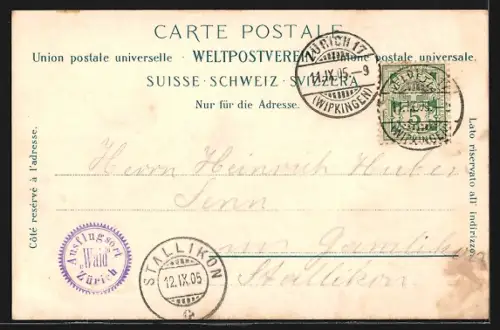 CARTE POSTALE
Union postale universelle · WELTPOSTVEREIN · Unione postale universale.
SUISSE · SCHWEIZ · SVIZZERA
Nur für die Adresse.
ZÜRICH 17
11.IX.05-9
(WIPKINGEN)
5
(WIPKINGEN)
Côté réservé à l'adresse.
Lato riservato all' indirizzo.
Herrn Heinrich Huber
Senn
Stallikon
Ausflugsort
"Wald"
Zürich
STALLIKON
12.IX.05